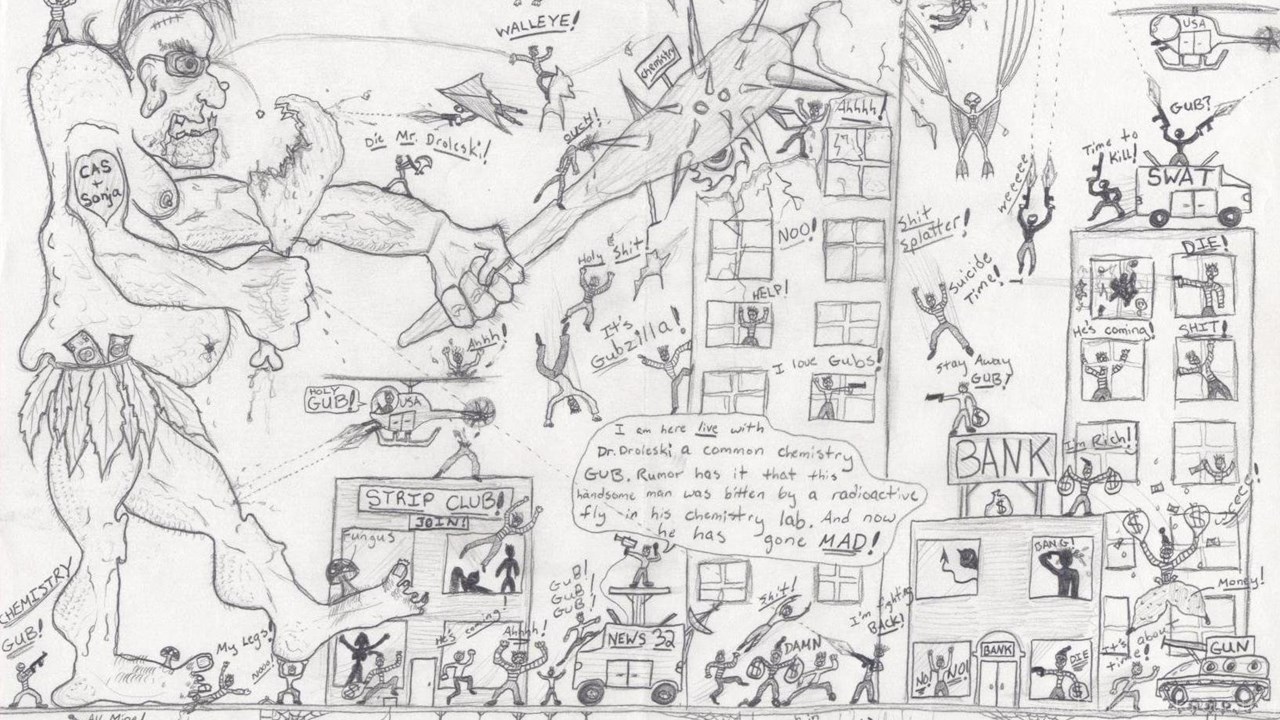 WALLEYE!
chemistry
USA
Die Mr. Droleski!
ouch!
Ahhhh!
GUB?
Time to
Kill!
SWAT
weeeeee
CAS
+
Sonja
Shit
Splatter!
NOO!
Holy Shit!
DIE!
Suicide
Time!
HELP!
It's
Gubzilla!
He's coming!
SHIT!
Ahhh!
I love Gubs!
Stay Away
GUB!
HOLY
GUB!
USA
I am here live with
Dr. Droleski a common chemistry
GUB. Rumor has it that this
handsome man was bitten by a radioactive
fly in his chemistry lab. And now
he has gone MAD!
BANK
I'm Rich!
STRIP CLUB!
JOIN!
Fungus
BANG!
CHEMISTRY
GUB!
GUB!
GUB!
GUB!
Money!
Shit!
I'm fighting
BACK!
My Legs!
Noooo!
He's coming!
Ahhhh!
NEWS 32
DAMN
NO!
NO!
BANK
DIE
It's about
time!
GUN
All Mine!